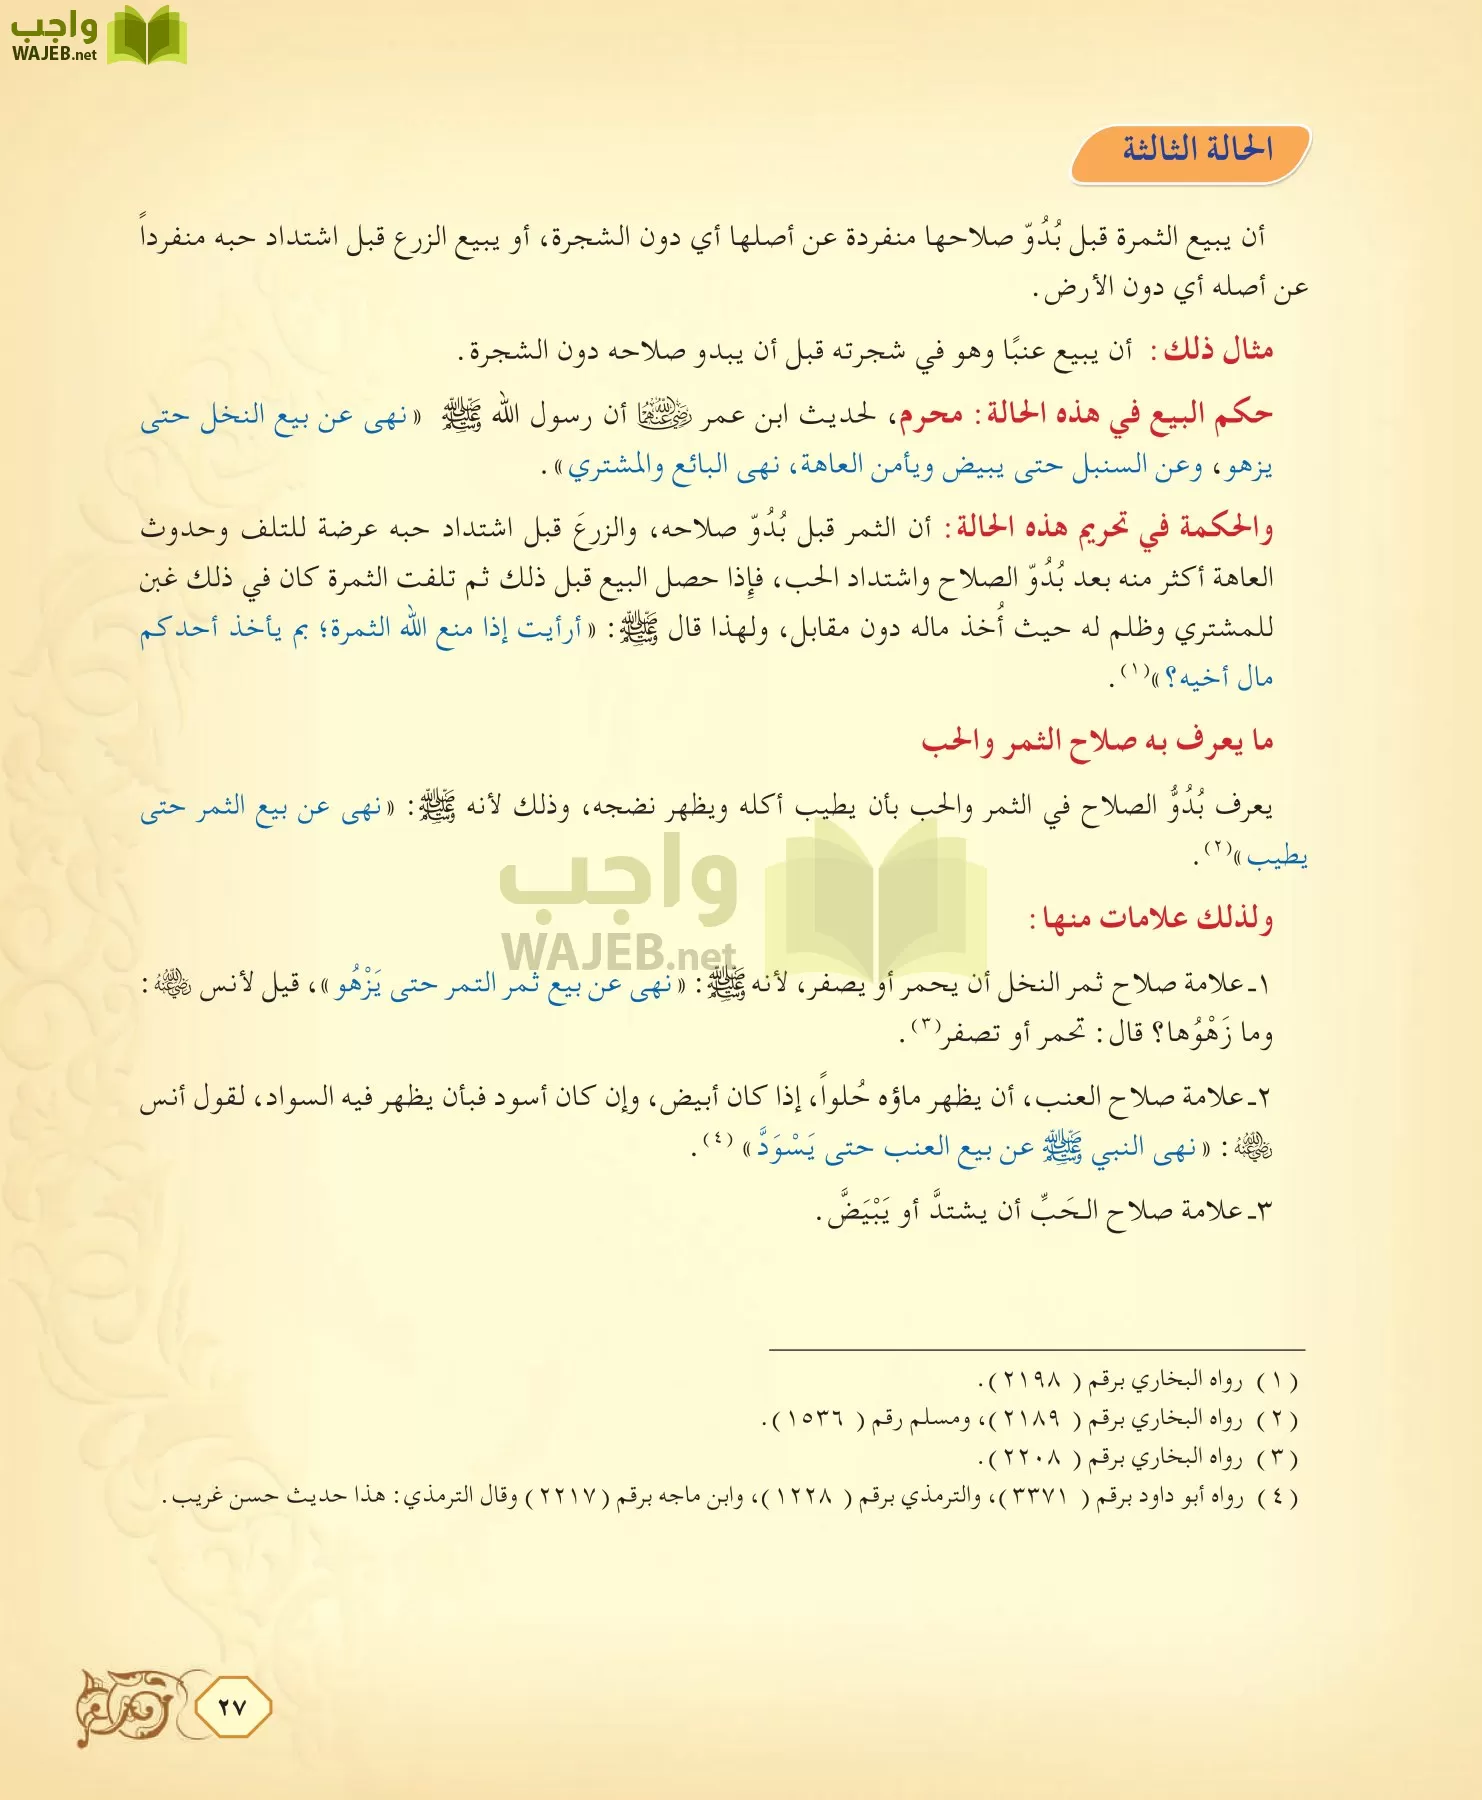 واجب
WAJEB.net
الحالة الثالثة
أن يبيع الثمرة قبل بُدُوّ صلاحها منفردة عن أصلها أي دون الشجرة، أو يبيع الزرع قبل اشتداد حبه منفرداً
عن أصله أي دون الأرض.
مثال ذلك: أن يبيع عنبًا وهو في شجرته قبل أن يبدو صلاحه دون الشجرة.
حكم البيع في هذه الحالة: محرم، لحديث ابن عمر رضي الله عنهما أن رسول الله ﷺ «نهى عن بيع النخل حتى
يزهو، وعن السنبل حتى يبيض ويأمن العاهة، نهى البائع والمشتري».
والحكمة في تحريم هذه الحالة: أن الثمر قبل بُدُوّ صلاحه، والزرعَ قبل اشتداد حبه عرضة للتلف وحدوث
العاهة أكثر منه بعد بُدُوّ الصلاح واشتداد الحب، فإذا حصل البيع قبل ذلك ثم تلفت الثمرة كان في ذلك غبن
للمشتري وظلم له حيث أُخذ ماله دون مقابل، ولهذا قال ﷺ: «أرأيت إذا منع الله الثمرة؛ بم يأخذ أحدكم
مال أخيه؟»(١).
ما يعرف به صلاح الثمر والحب
يعرف بُدُوُّ الصلاح في الثمر والحب بأن يطيب أكله ويظهر نضجه، وذلك لأنه ﷺ: «نهى عن بيع الثمر حتى
يطيب»(٢).
واجب
WAJEB.net
ولذلك علامات منها:
١ـ علامة صلاح ثمر النخل أن يحمر أو يصفر، لأنه ﷺ: «نهى عن بيع ثمر التمر حتى يَزْهُو»، قيل لأنس رضي الله عنه:
وما زَهْوُها؟ قال: تحمر أو تصفر(٣).
٢ـ علامة صلاح العنب، أن يظهر ماؤه حُلواً، إذا كان أبيض، وإن كان أسود فبأن يظهر فيه السواد، لقول أنس
رضي الله عنه: «نهى النبي ﷺ عن بيع العنب حتى يَسْوَدَّ» (٤).
٣ـ علامة صلاح الحَبِّ أن يشتدَّ أو يَبْيَضَّ.
(١) رواه البخاري برقم (٢١٩٨).
(٢) رواه البخاري برقم (٢١٨٩)، ومسلم رقم (١٥٣٦).
(٣) رواه البخاري برقم (٢٢٠٨).
(٤) رواه أبو داود برقم (٣٣٧١)، والترمذي برقم (١٢٢٨)، وابن ماجه برقم (٢٢١٧) وقال الترمذي: هذا حديث حسن غريب.
٢٧